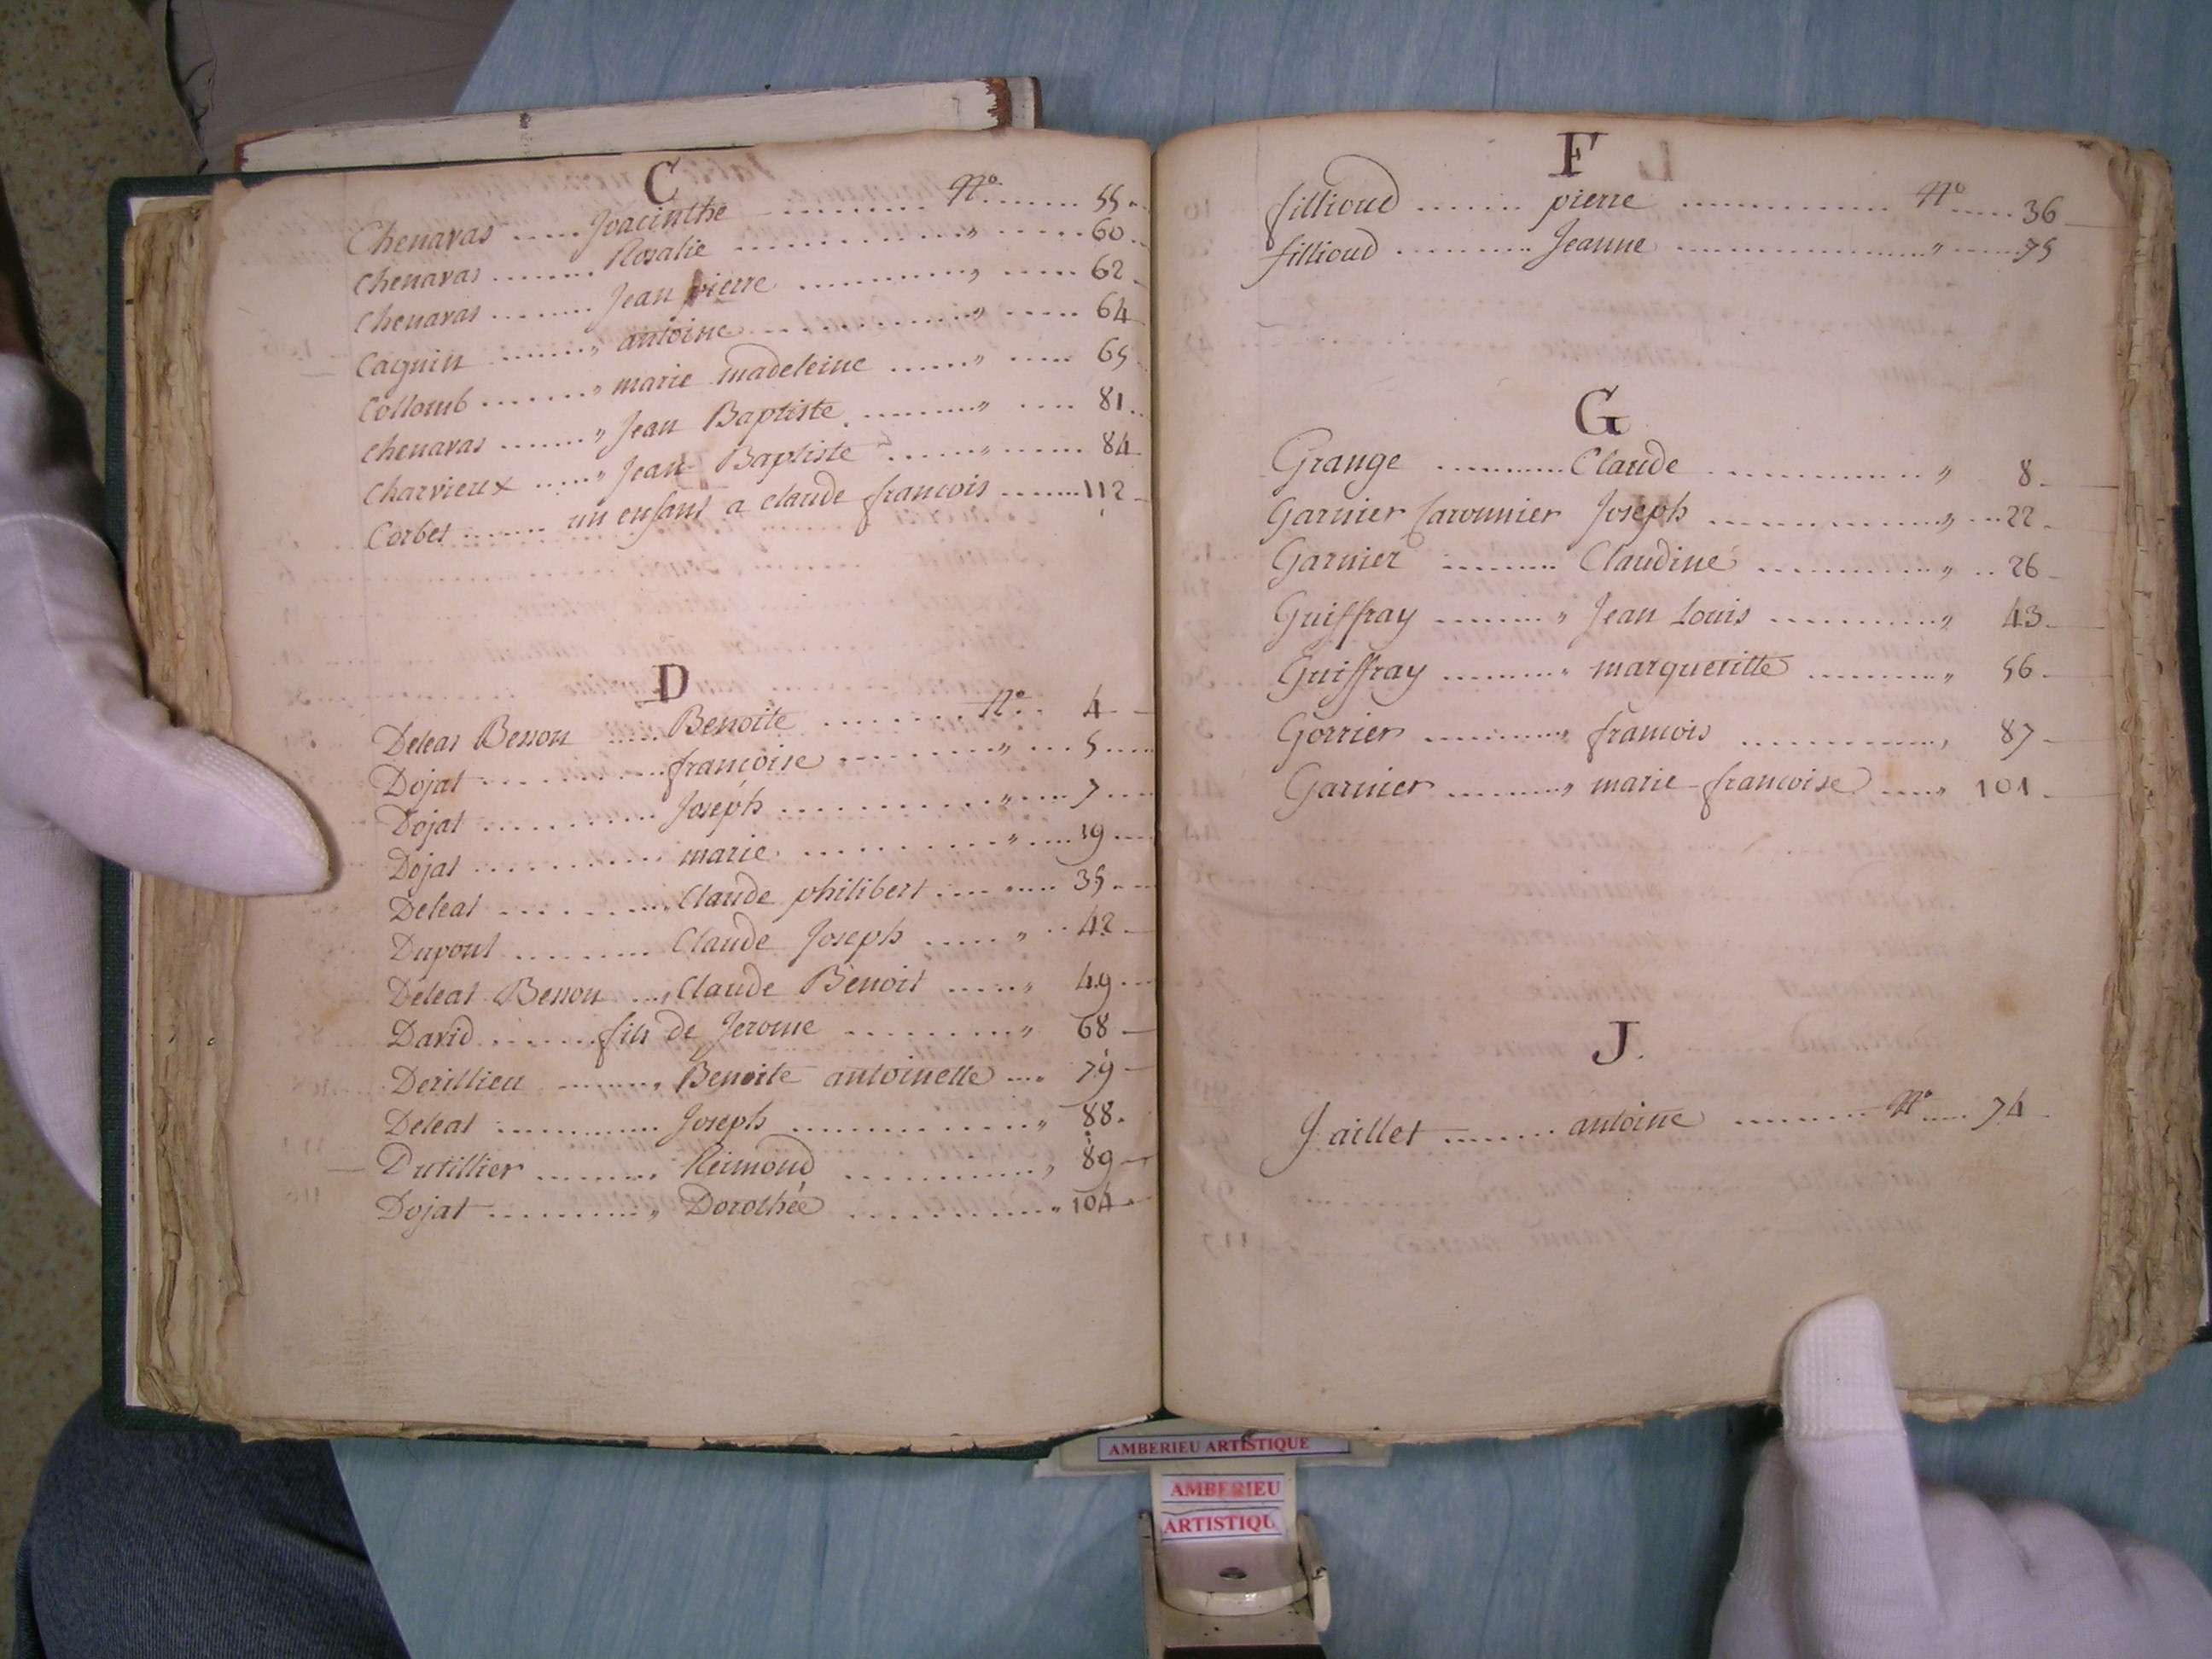 C
Chenavas ..... Joacinthe ........... N° ........ 55
Chenavas ........ Rosalie ............... " ...... 60
Chenavas ........ Jean pierre ............ " ..... 62
Caguin ........ " antoine ............... " ..... 64
Collomb ....... " marie madeleine ...... " ..... 65
Chenavas ....... " Jean Baptiste ......... " .... 81
Charvieux ..... " Jean Baptiste ........ " ...... 84
Corbet ........ un enfant a claude francois ........ 112
D
Deleas Besson ..... Benoite ............ N° .. 4
Dojat ............... francoise .......... " ... 5
Dojat ............. Joseph .............. " .... 7
Dojat ............. marie ............... " .... 19
Deleat ............ Claude philibert .... " .... 35
Dupont ......... Claude Joseph ..... " .. 42
Deleat Besson .... Claude Benoit ..... " 49
David ........ fils de Jerome .......... " 68
Derillieu ........ Benoite antoinette .... 79
Deleat ............. Joseph .............. " 88
Dutillier ......... Reimond ............ " 89
Dojat ........... " Dorothée ............ " 104
F
fillioud ....... pierre .............. N° ..... 36
fillioud ......... Jeanne ................. " ...... 75
G
Grange .......... Claude .............. " 8
Garnier Caronnier Joseph ............... " ... 22
Garnier ......... Claudine ............ " .. 26
Guiffray ........ " Jean Louis ........... " 43
Guiffray ......... " margueritte ......... " 56
Gorrier .......... " francois ............. " 87
Garnier ......... " marie francoise .... " 101
J.
Jaillet ....... antoine ......... N° .... 74
AMBERIEU ARTISTIQUE
AMBERIEU
ARTISTIQU